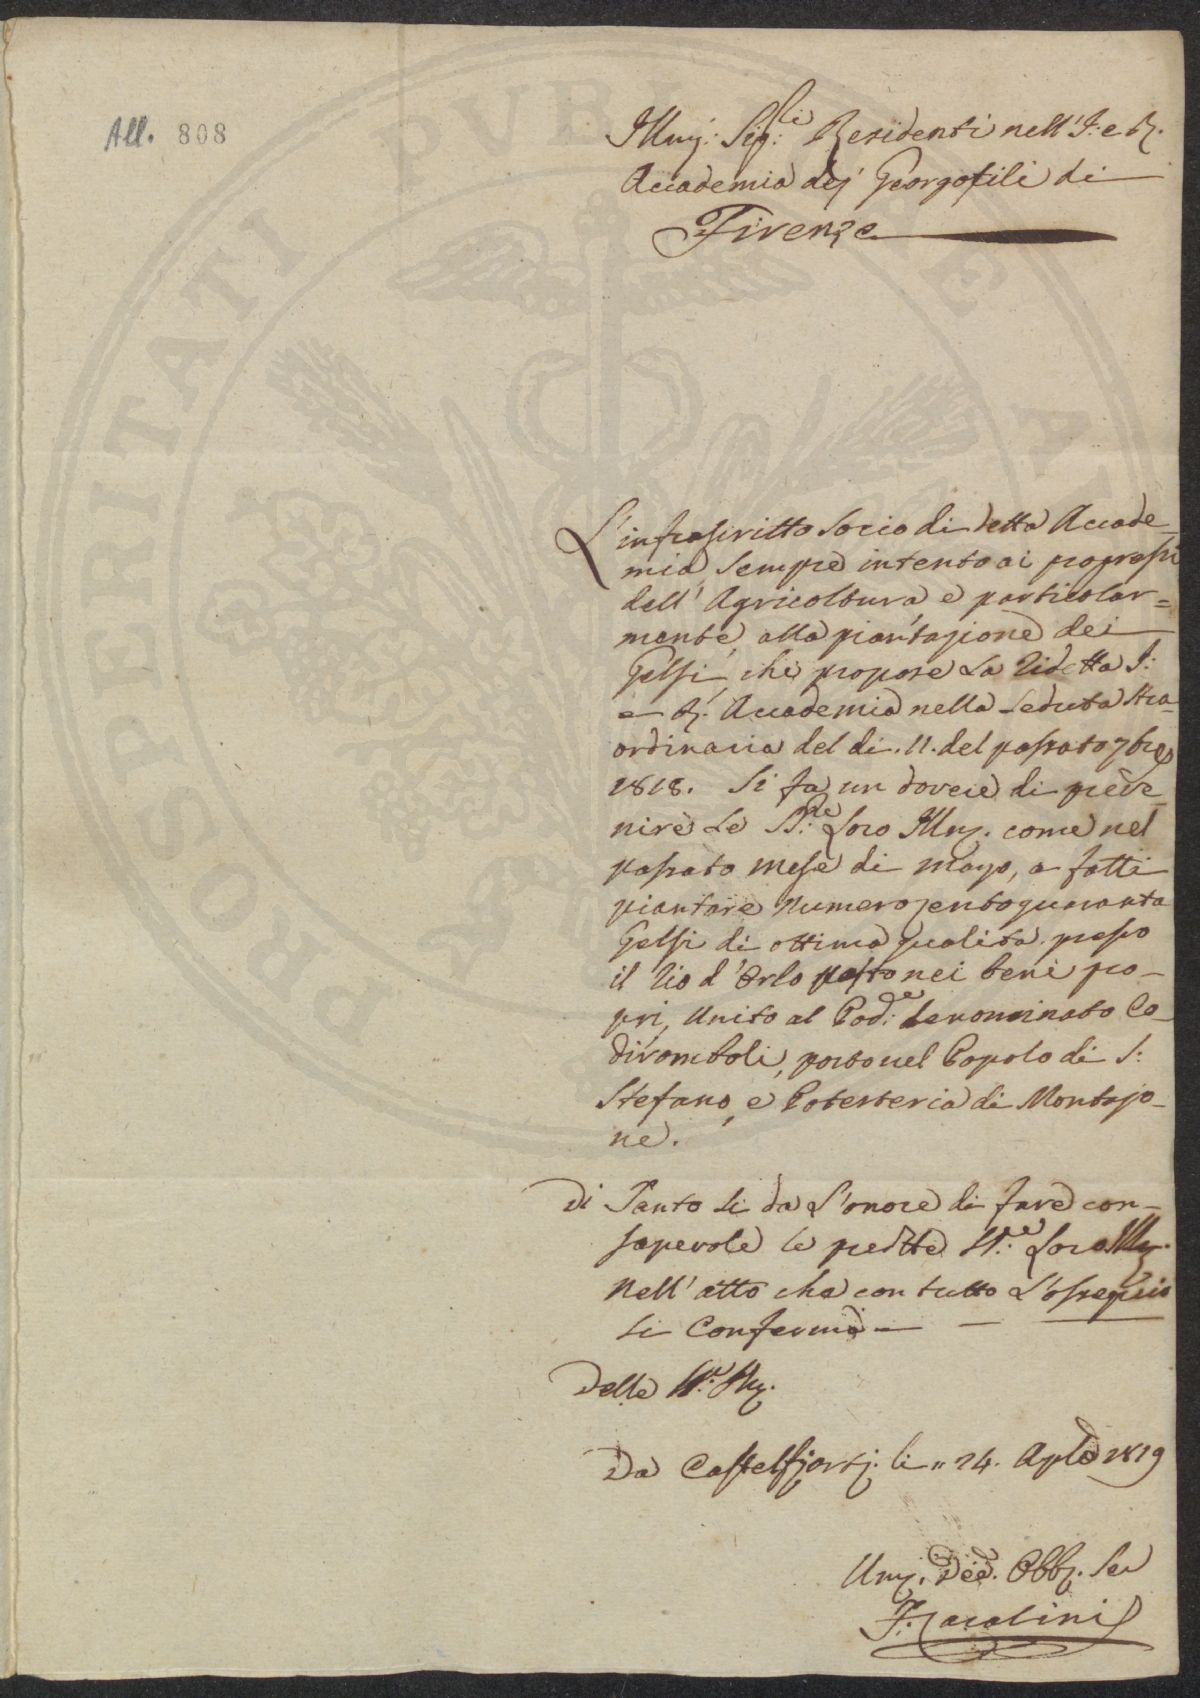 All. 808
Illmj: Sig:li Residenti nell' I: e R.
Accademia dej Georgofili di
Firenze
L'infrascritto Socio di detta Accade-
mia sempre intento ai progressi
dell' Agricoltura, e particolar=
mente, alla piantazione dei
Gelsi, che propose la ridetta I:
e R. Accademia nella Seduta Stra-
ordinaria del di . 11. del passato 7bre
1818. Si fa un dovere di preve-
nire le SS:rie Loro Illmj. come nel
passato mese di marzo, a fatti
piantare numero centoquaranta
Gelsi di ottima qualita presso
il Rio d'Orlo posto nei beni pro-
pri, unito al Pod:e denominato Ca-
diromboli, posto nel Popolo di S:
Stefano, e Potesteria di Montajo-
ne.
Di Tanto si da l'onore di fare con-
sapevole le predtte SS:rie Loro Illmj.
nell' atto che con tutto l'ossequio
si Conferma
Delle SS:rie Illmj.
Da Castelfiortj. li " 24. Aple 1819
Umj. Dev. Obbj. Ser
PROSPERITATI PUBLICAE